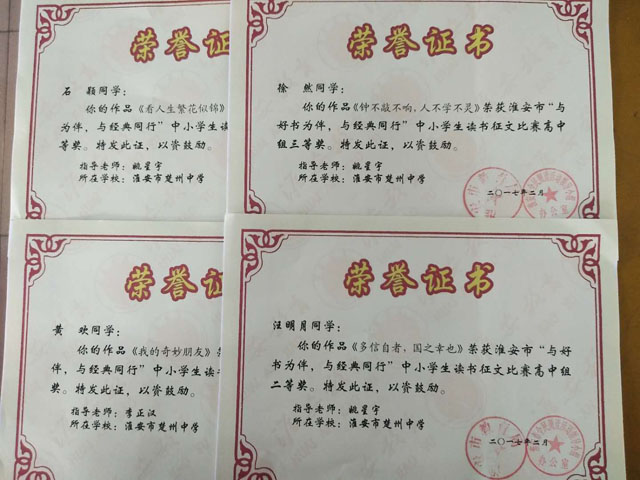 荣誉证
石 颖同学:
你的作品《看人生繁花似锦》
为伴,与经典同行”中小学生读
等奖。特发此证,以资鼓励。
指导老师:姚星宇
所在学校:淮安市楚州中学
荣誉证书
徐 然同学:
你的作品《钟不敲不响,人不学不灵》荣获淮安市“与
好书为伴,与经典同行”中小学生读书征文比赛高中
组三等奖。特发此证,以资鼓励。
指导老师:姚星宇
所在学校:淮安市楚州中学
二〇一七年二月
荣誉证
黄 欢同学:
你的作品《我的奇妙朋友》
伴,与经典同行”中小学生读书
奖。特发此证,以资鼓励。
指导老师:李正汉
所在学校:淮安市楚州中学
荣誉证书
汪明月同学:
你的作品《多信自者,国之幸也》荣获淮安市“与好
书为伴,与经典同行”中小学生读书征文比赛高中组
二等奖。特发此证,以资鼓励。
指导老师:姚星宇
所在学校:淮安市楚州中学
二〇一七年二月